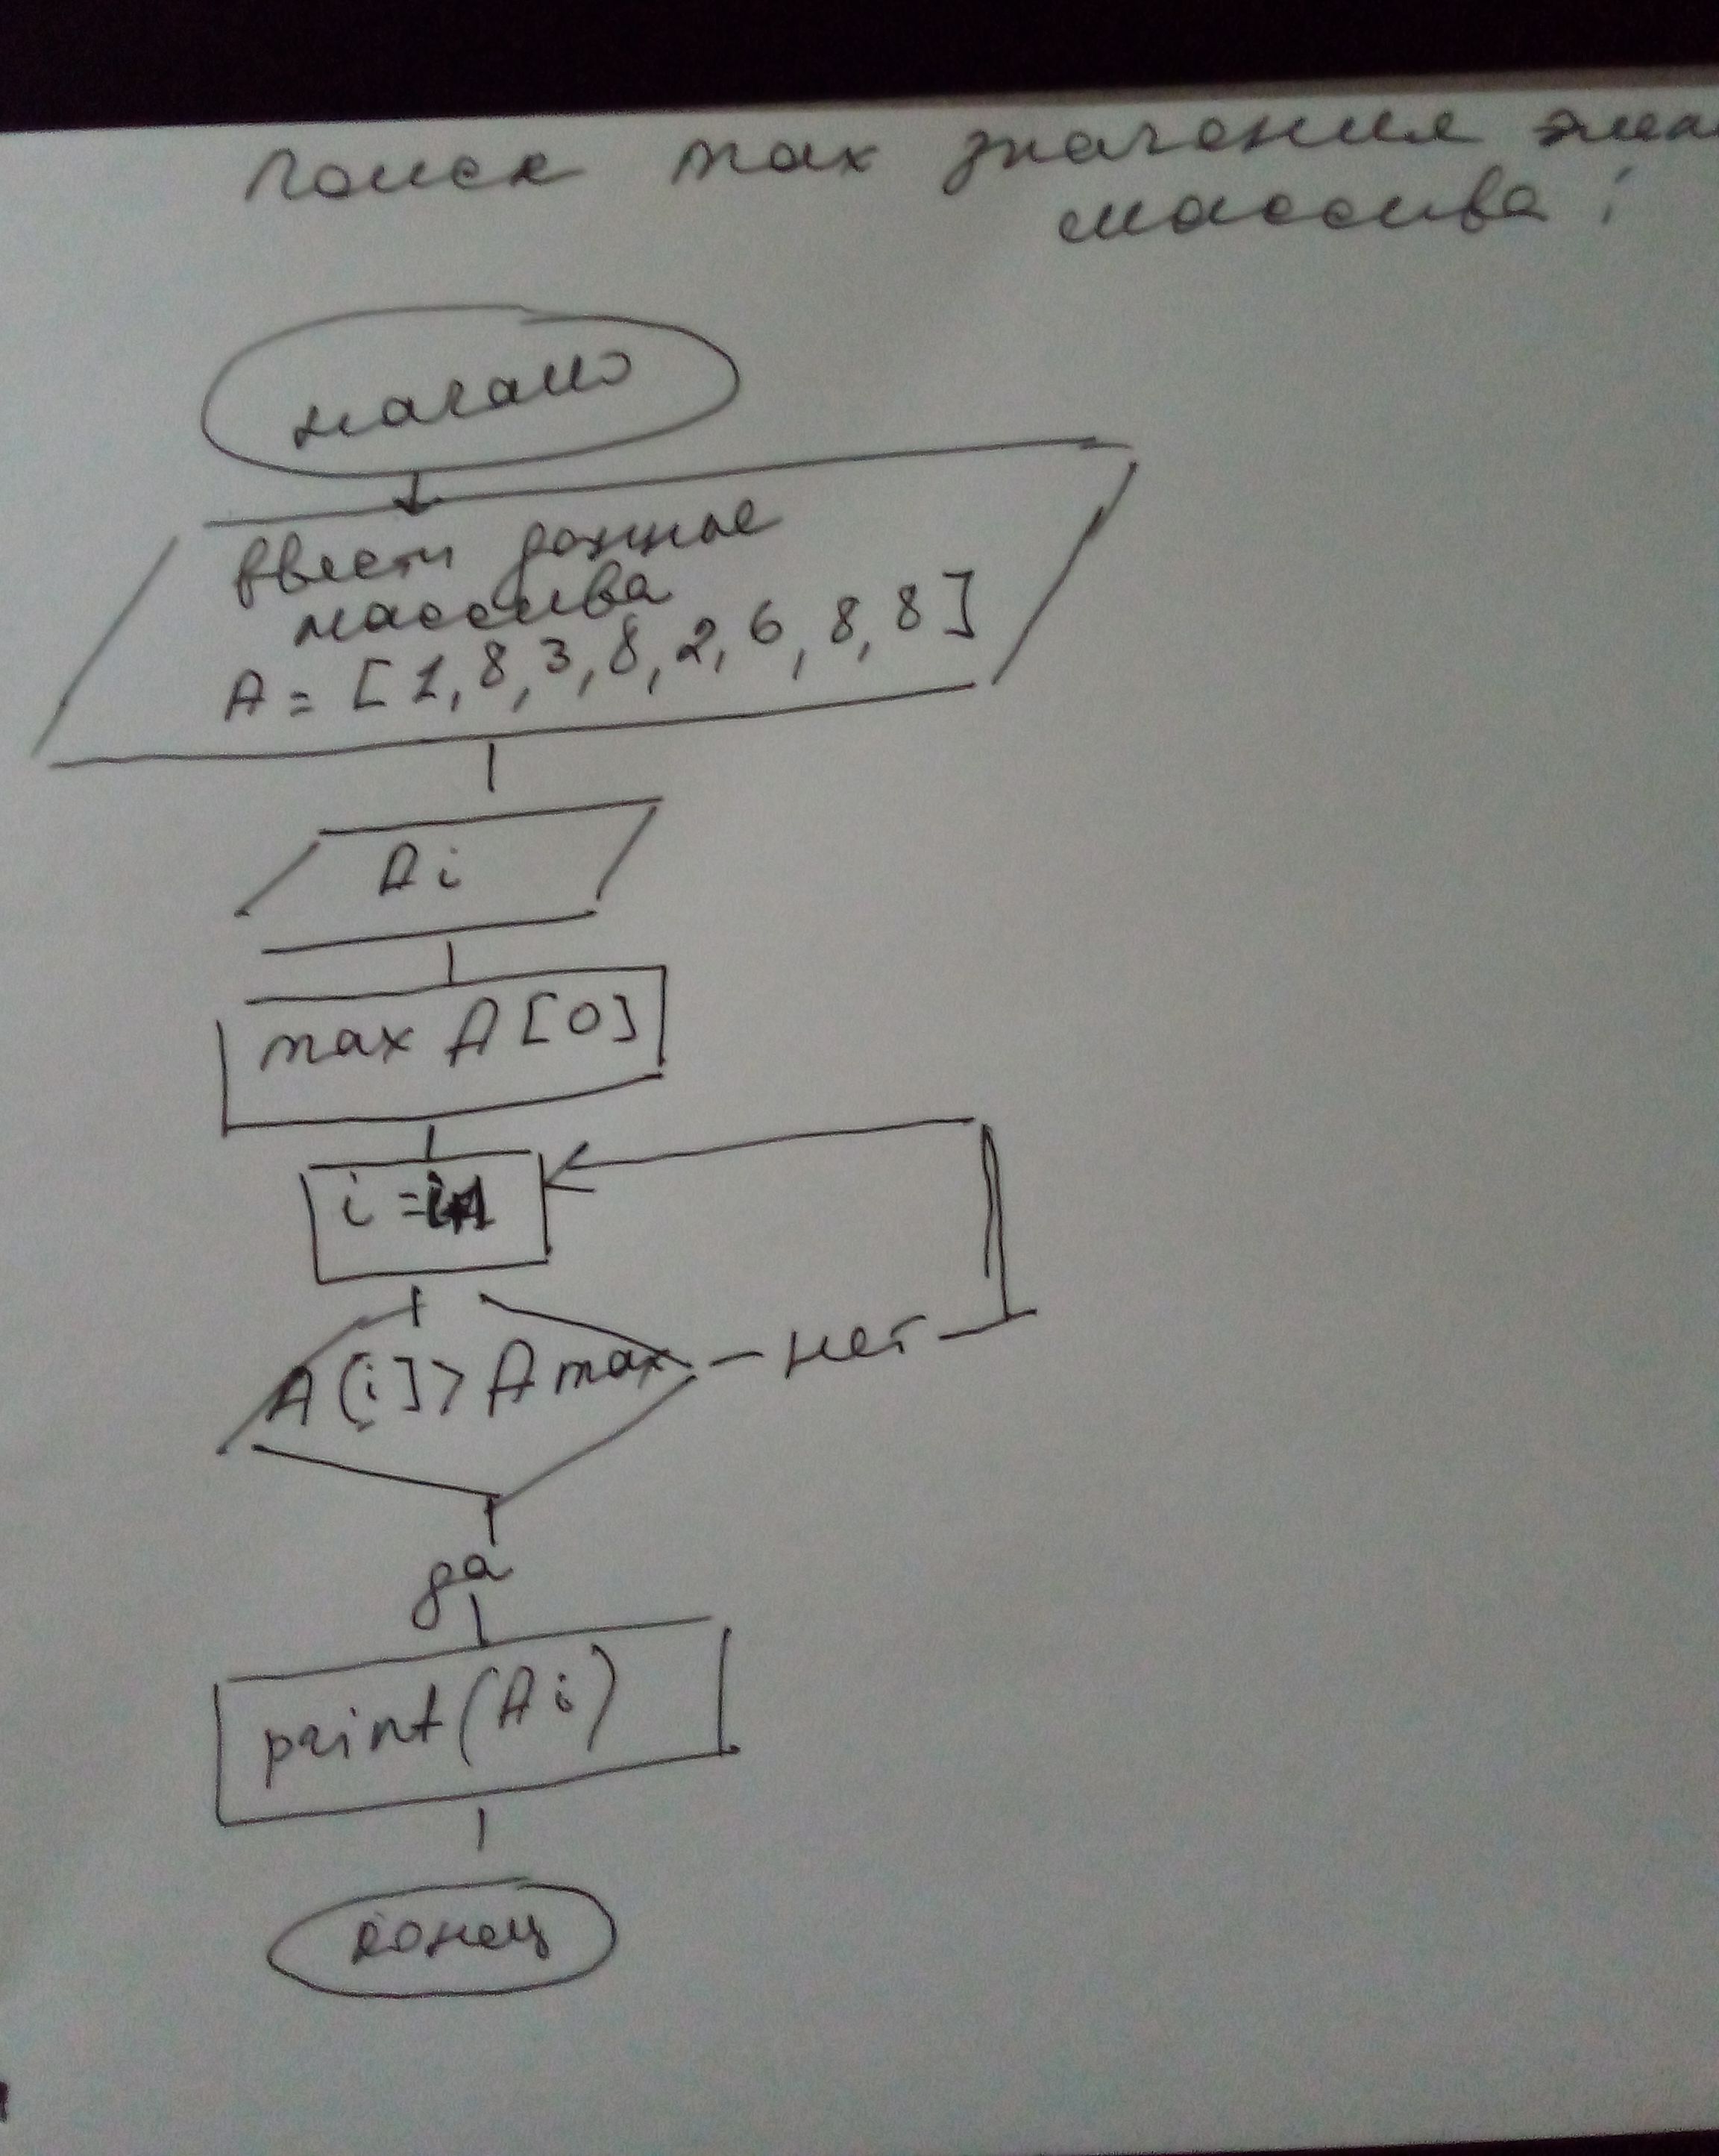 Поиск max значения
массива:
начало
ввести данные
массива
A = [1, 8, 3, 8, 2, 6, 8, 8]
Ai
max A[0]
i =
A[i] > A max - нет
да
print(Ai)
конец